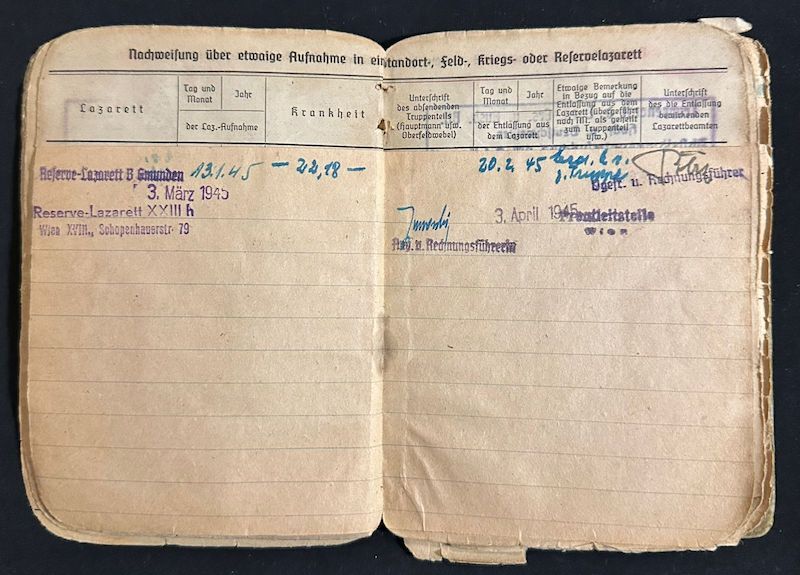 Nachweisung über etwaige Aufnahme in ein Standort-, Feld-, Kriegs- oder Reservelazarett
Lazarett
Tag und Monat
Jahr
der Laz.-Aufnahme
Krankheit
Unterschrift des absendenden Truppenteils (Hauptmann usw. Oberfeldwebel)
Tag und Monat
Jahr
der Entlassung aus dem Lazarett
Etwaige Bemerkung in Bezug auf die Entlassung aus dem Lazarett (übergeführt nach NN. als geheilt zum Truppenteil usw.)
Unterschrift des die Entlassung bewirkenden Lazarettbeamten
Reserve-Lazarett B Gmunden 13.1.45 — 22,18 — 20.2. 45
z. Truppe
u. Rechnungsführer
3. März 1945
Reserve-Lazarett XXIII h
Wien XVIII., Schopenhauerstr. 79
3. April 1945 Frontleitstelle
Wien
u. Rechnungsführerin